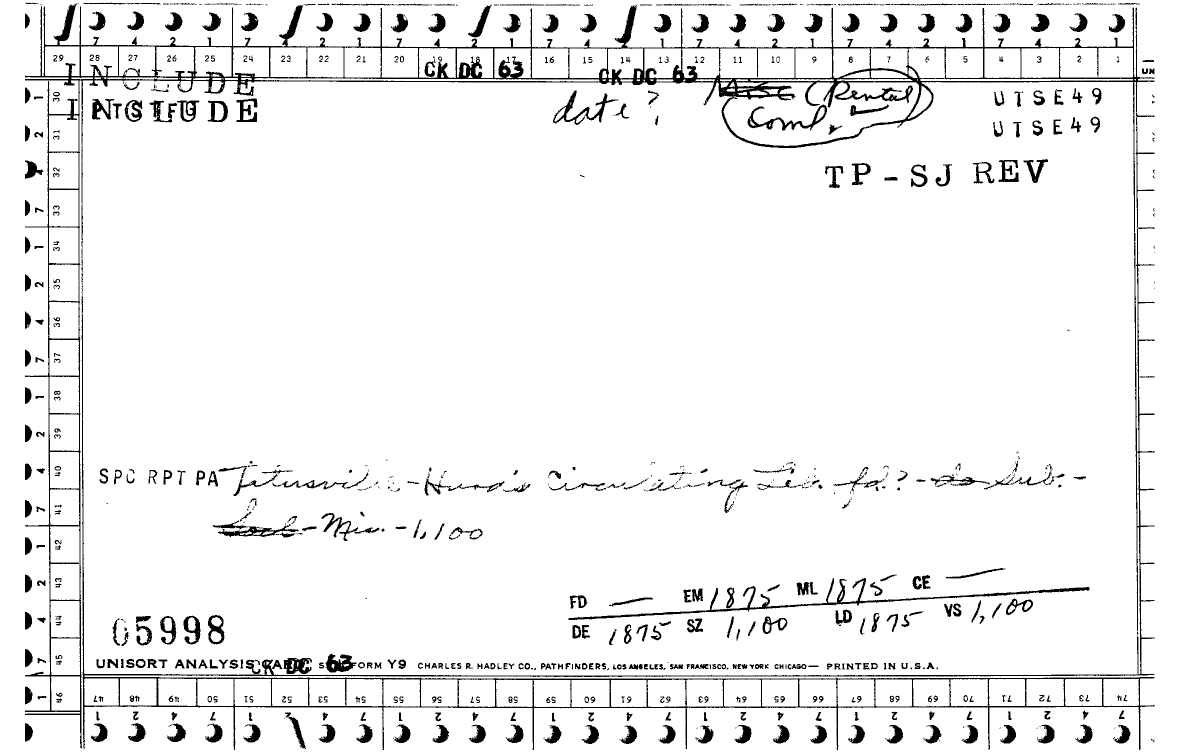 7 4 2 1 7 4 2 1 7 4 2 1 7 4 2 1 7 4 2 1 7 4 2 1 7 4 2 1
29 28 27 26 25 24 23 22 21 20 19 18 17 16 15 14 13 12 11 10 9 8 7 6 5 4 3 2 1
CK DC 63 CK DC 63
INCLUDE
INCLUDE
date? Misc (Rental)
Coml.
UTSE49
UTSE49
TP-SJ REV
30 31 32 33 34 35 36 37 38 39 40 41 42 43 44 45 46
SPC RPT PA Titusville-Hurd's Circulating Lib. fd? - do Sub. -
Soch - Mis. - 1,100
FD — EM 1875 ML 1875 CE —
DE 1875 SZ 1,100 LD 1875 VS 1,100
05998
UNISORT ANALYSIS CARD FORM Y9 CHARLES R. HADLEY CO., PATHFINDERS, LOS ANGELES, SAN FRANCISCO, NEW YORK CHICAGO— PRINTED IN U.S.A.
CK DC 63
47 48 49 50 51 52 53 54 55 56 57 58 59 60 61 62 63 64 65 66 67 68 69 70 71 72 73 74
1 2 4 7 1 2 4 7 1 2 4 7 1 2 4 7 1 2 4 7 1 2 4 7 1 2 4 7